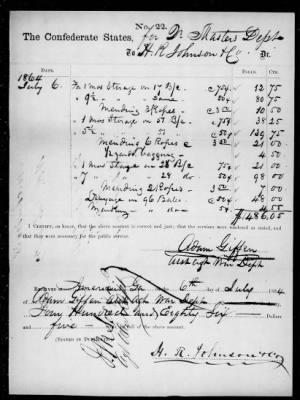 No. 22.
The Confederate States, for Qr Masters Dept
To H. R. Johnson & Co. Dr.
1864 DOLLS. CTS.
July 6. For 1 mos Storage on 17 B/c c 75¢ 12 75
Same c 50¢ 80 75
Mending 3 Ropes c 3 50 10 50
1 mos Storage on 51 B/c c 75¢ 38 25
5 c 50¢ 129 75
Mending 6 Ropes c 3 50 21 00
bagging 4 50
1 mos Storage on 28 B/c c 75¢ 21 00
7 28 do c 50¢ 98 00
Mending 2 Ropes c 3 50 7 00
Drayage on 96 Bales c 50¢ 48 00
Marking do 14 55
$486.05
I CERTIFY, on honor, that the above account is correct and just; that the services were rendered as stated, and
that they were necessary for the public service.
Adam Giffen
Asst Agt War Dept
RECEIVED Savannah Ga the 6th of July 1864
of Adam Giffen Asst Agt War Dept
Four Hundred and Eighty Six Dollars
five in full of the above account.
(SIGNED IN DUPLICATE.)
H. R. Johnson & Co